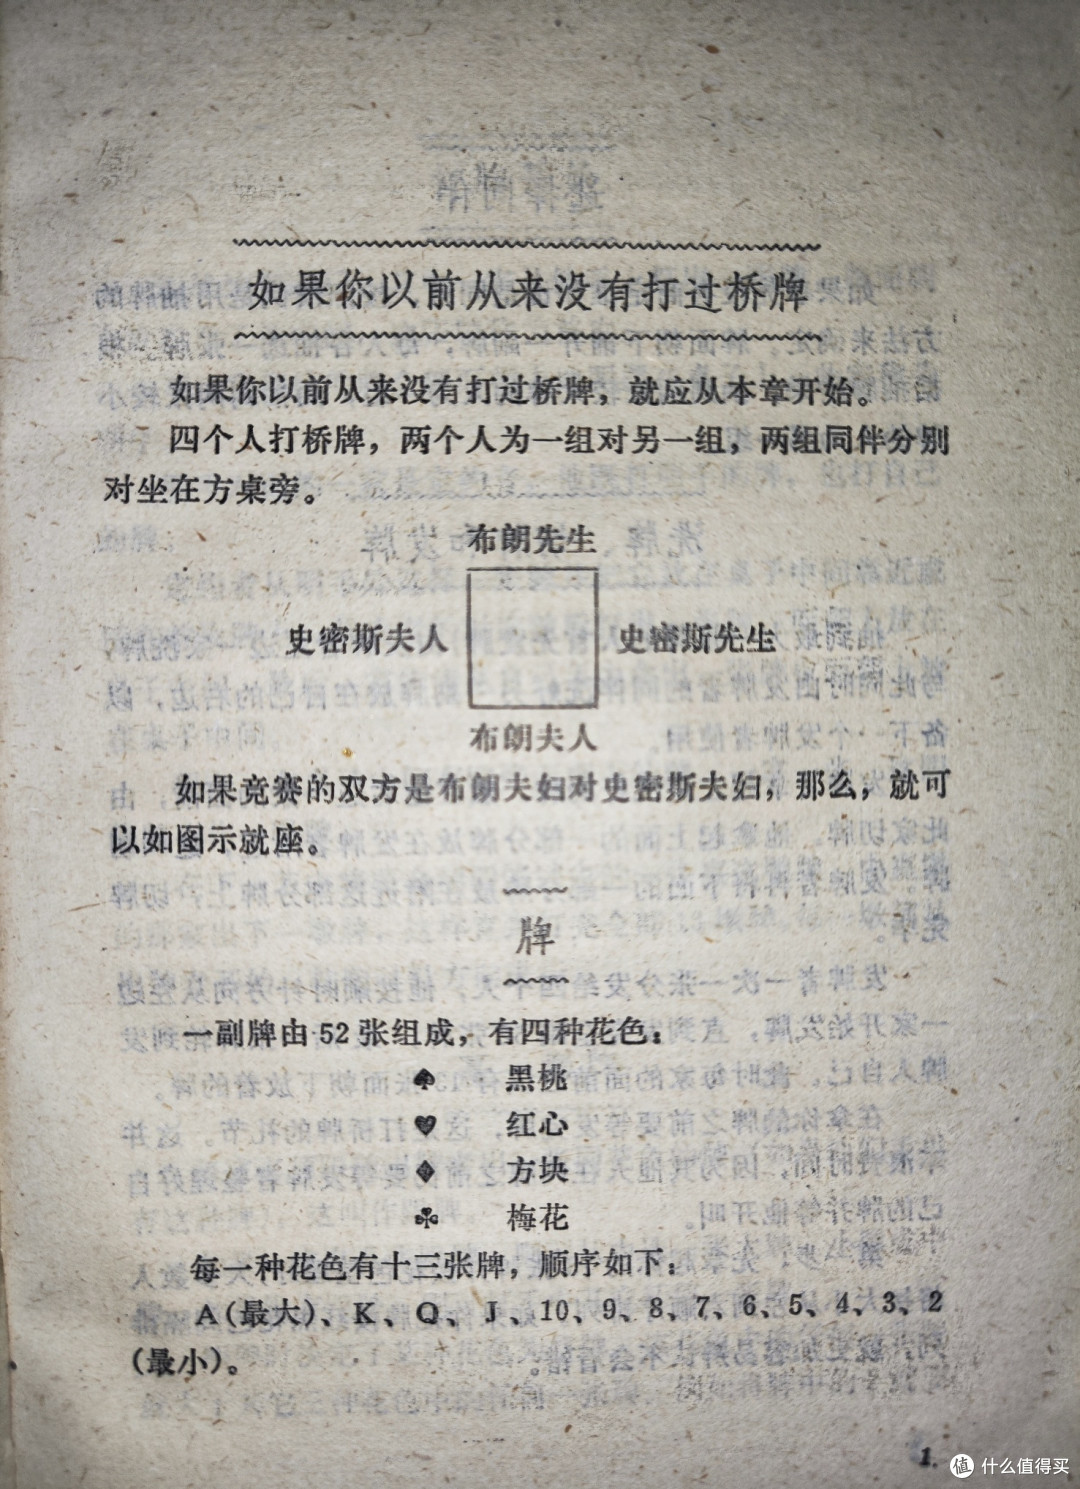 如果你以前从来没有打过桥牌
如果你以前从来没有打过桥牌，就应从本章开始。
四个人打桥牌，两个人为一组对另一组，两组同伴分别
对坐在方桌旁。
布朗先生
史密斯夫人 史密斯先生
布朗夫人
如果竞赛的双方是布朗夫妇对史密斯夫妇，那么，就可
以如图示就座。
牌
一副牌由52张组成，有四种花色：
♠ 黑桃
♥ 红心
♦ 方块
♣ 梅花
每一种花色有十三张牌，顺序如下：
A(最大)、K、Q、J、10、9、8、7、6、5、4、3、2
(最小)。
1.
值 什么值得买